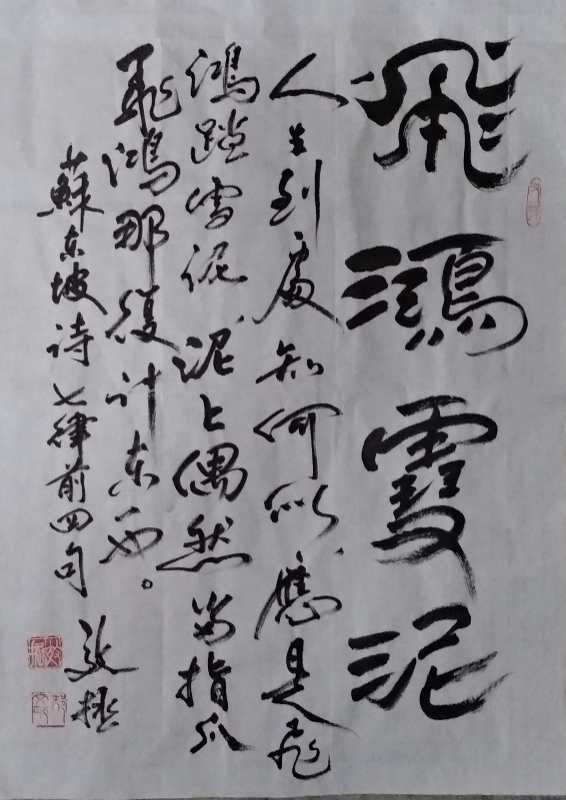 飛鴻雪泥
人生到處知何似應是飛
鴻踏雪泥泥上偶然留指爪
飛鴻那復計東西。
蘇東坡詩七律前四句